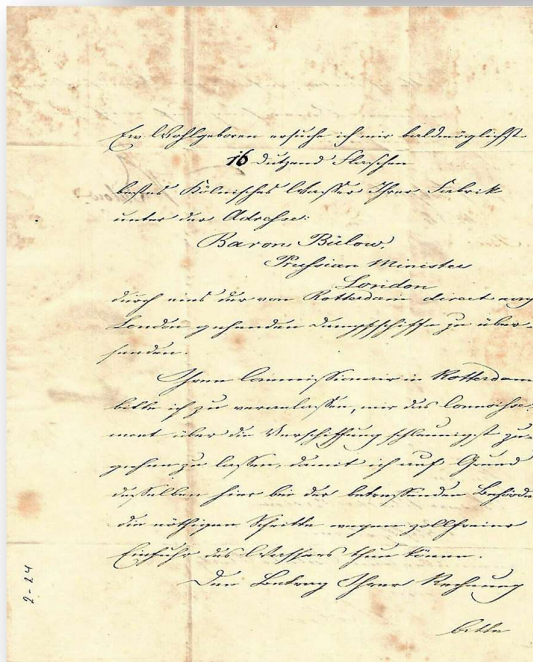 Ew Wohlgeboren ersuche ich mir baldmöglichst
16 Dutzend Flaschen
bestes Kölnisches Wasser Ihrer Fabrik
unter der Adresse:
Baron Bülow,
Prussian Minister
London
durch eins der von Rotterdam direct nach
London gehenden Dampfschiffe zu über-
senden.
Ihren Commissionair in Rotterdam
bitte ich zu veranlassen, mir das Connoisse-
ment über die Verschiffung schleunigst zu-
gehen zu lassen, damit ich auf Grund
desselben hier bei der betreffenden Behörde
die nöthigen Schritte wegen zollfreier
Einfuhr des Wassers thun könne.
Den Betrag Ihrer Rechnung
bitte
2-24